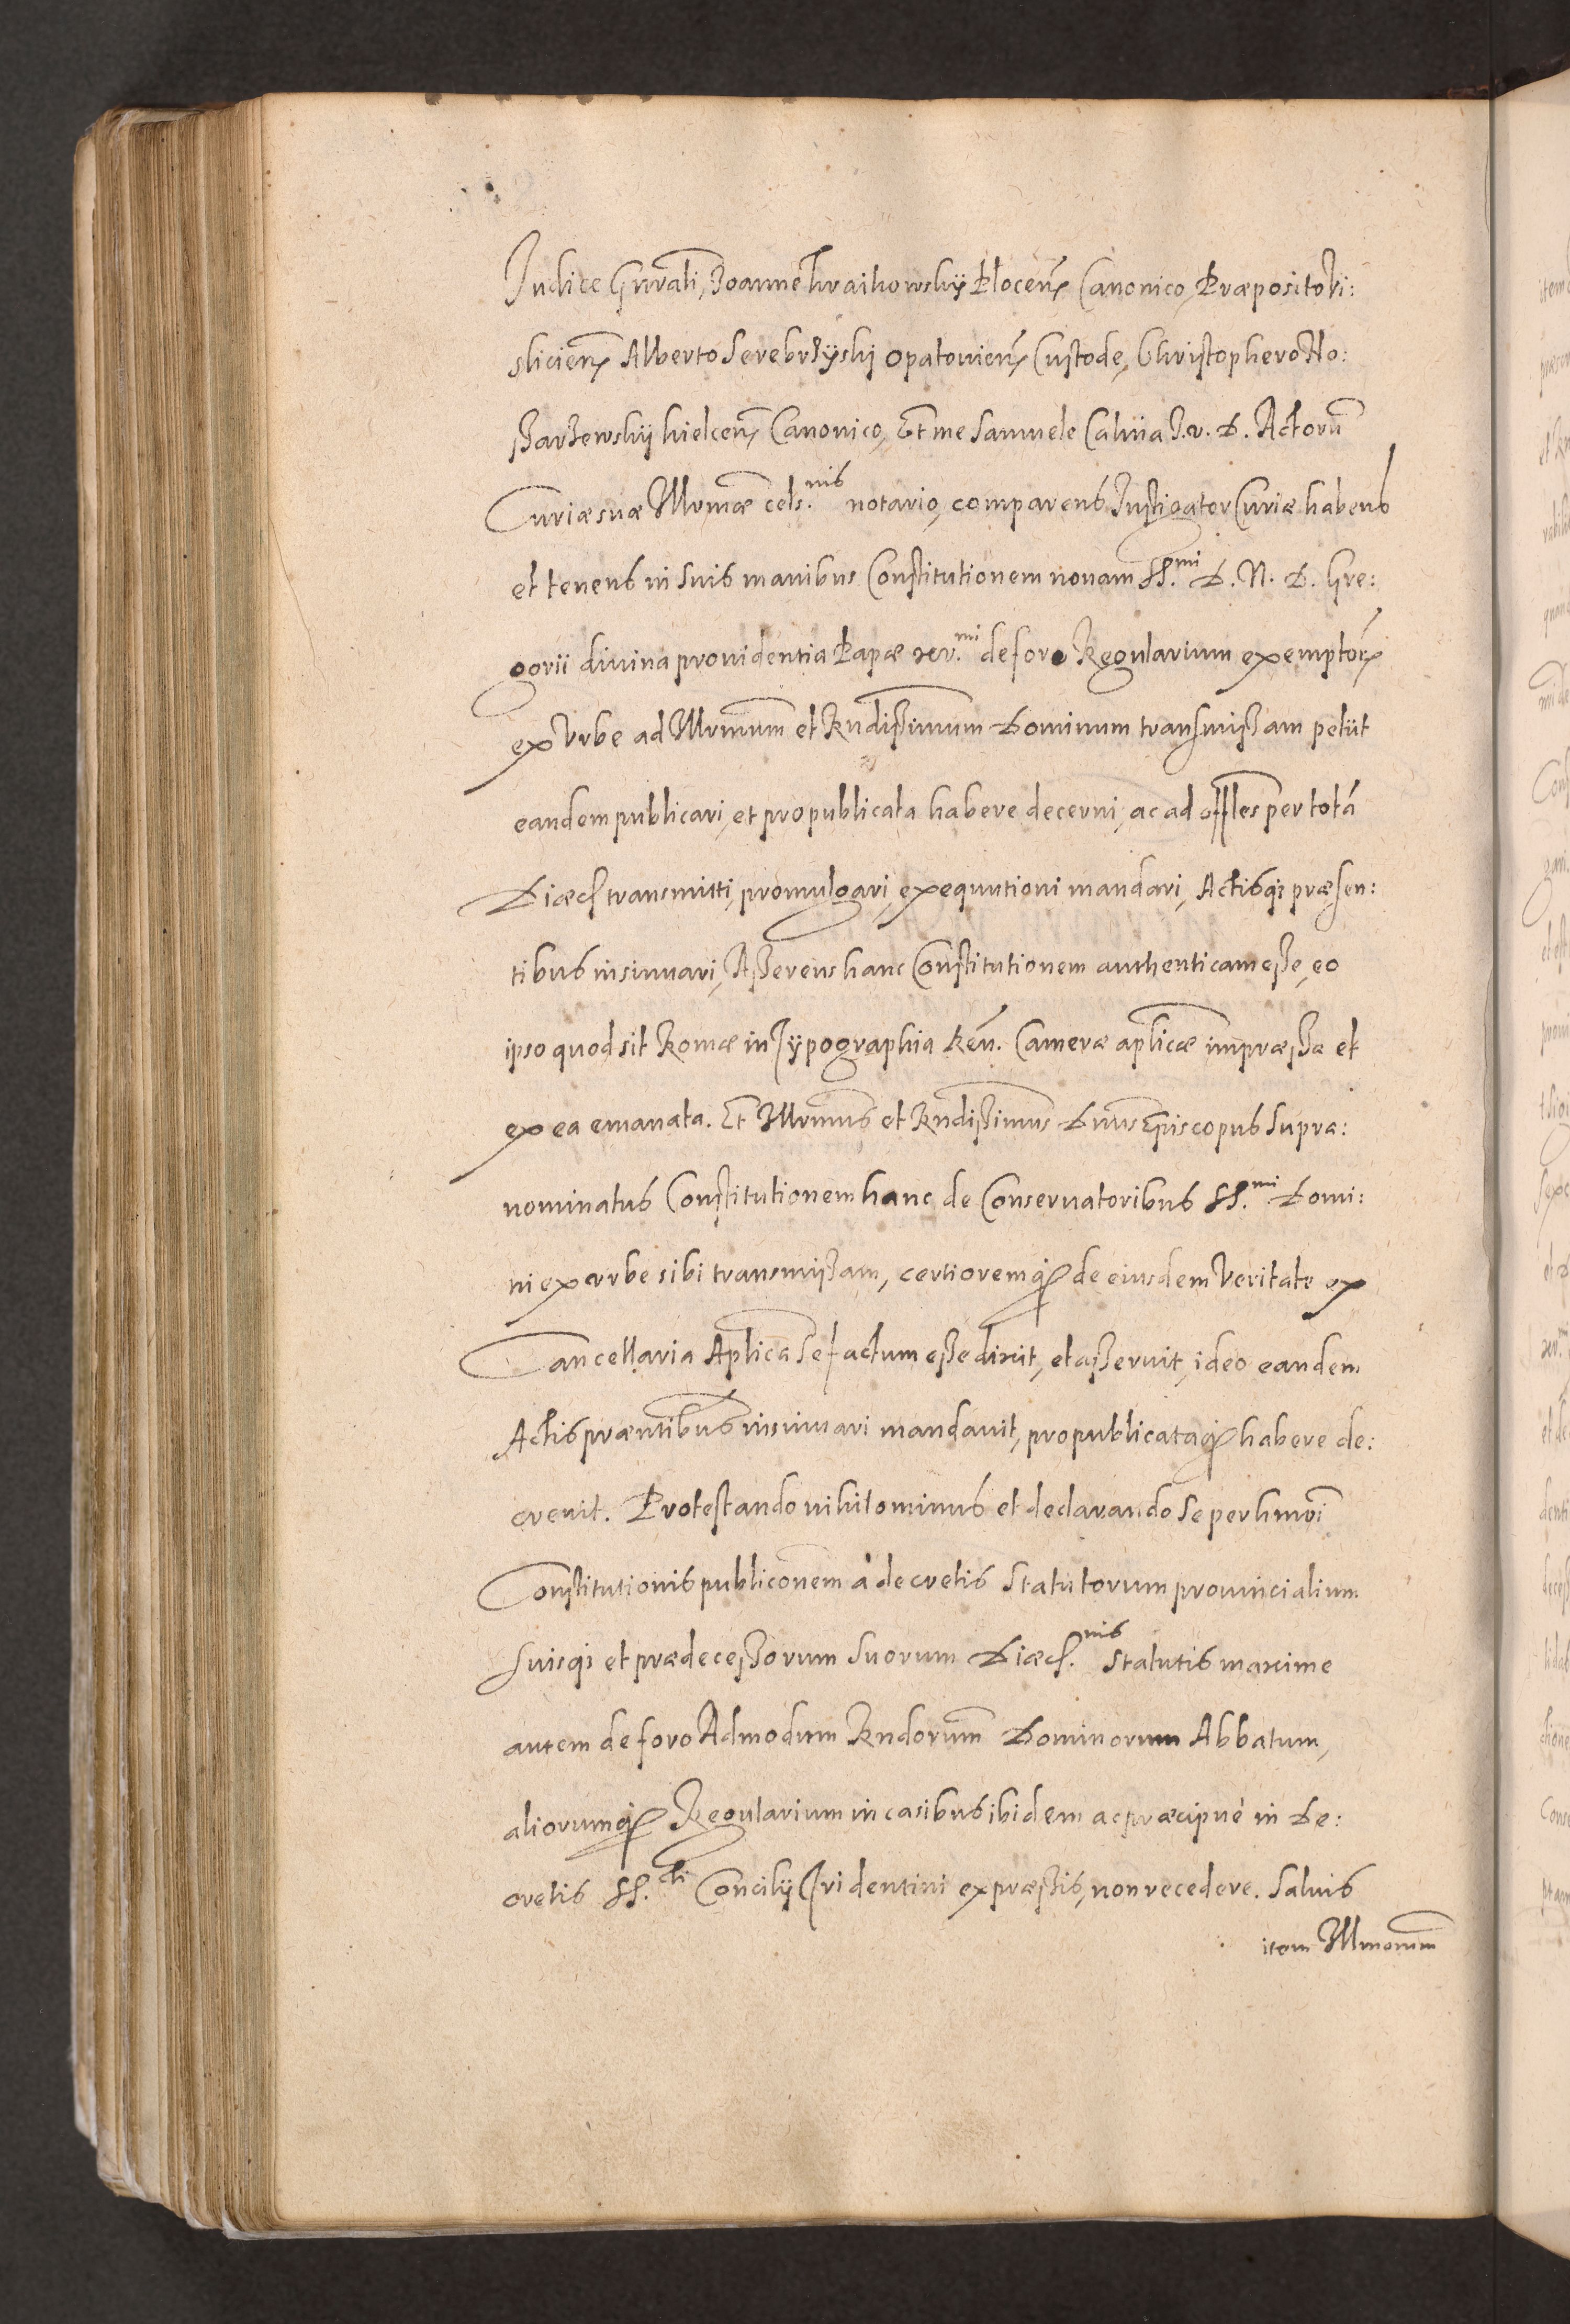 Judice Gnrali, Joanne Kraikowskÿ Płocen̄ Canonico, Præposito Vi:
slicien̄ Alberto Serebrzÿskj Opatouien̄ Custode, Christophero No:
ßarzewskÿ kielcen̄ Canonico, Et me Samuele Caluia J. v. D. Actorū
Curiæ suæ Illrmæ cels.nis notario, comparens Instigator Curiæ habens
et tenens in suis manibus Constitutionem nouam SS.mi D. N. D. Gre:
gorii diuina prouidentia Papæ xv.mi de foro Regularium exemptor̄
ex Vrbe ad Illrmum et Rndißimum Dominum transmißam petiit
eandem publicari, et pro publicata habere decerni, ac ad offles per totā
Diæcs transmitti, promulgari, exequutioni mandari, Actisq; præsen:
tibus insinuari, Aßerens hanc Constitutionem authenticam eße, eo
ipso quod sit Romæ in Typographia Reū. Cameræ aplicæ impræßa et
ex ea emanata. Et Illrmus et Rndißimus Dnus Episcopus supra:
nominatus Constitutionem hanc de Conseruatoribus SS.mi Domi:
ni ex vrbe sibi transmißam, certioremq; de eiusdem Veritate ex
Cancellaria Aplica se factum eße dixit, et aßeruit, ideo eandem
Actis præntibus insinuari mandauit, pro publicataq; habere de:
creuit. Protestando nihilominus et declarando se per hmōi
Constitutionis publiconem à decretis Statutorum prouincialium
suisq; et prædeceßorum suorum Diæcs.nis Statutis maxime
autem de foro Admodum Rndorum Dominorum Abbatum,
aliorumq; Regularium in casibus ibidem ac præcipuè in De:
cretis SS.cti Concilÿ Tridentini expræßis, non recedere. Saluis
item Illmorum